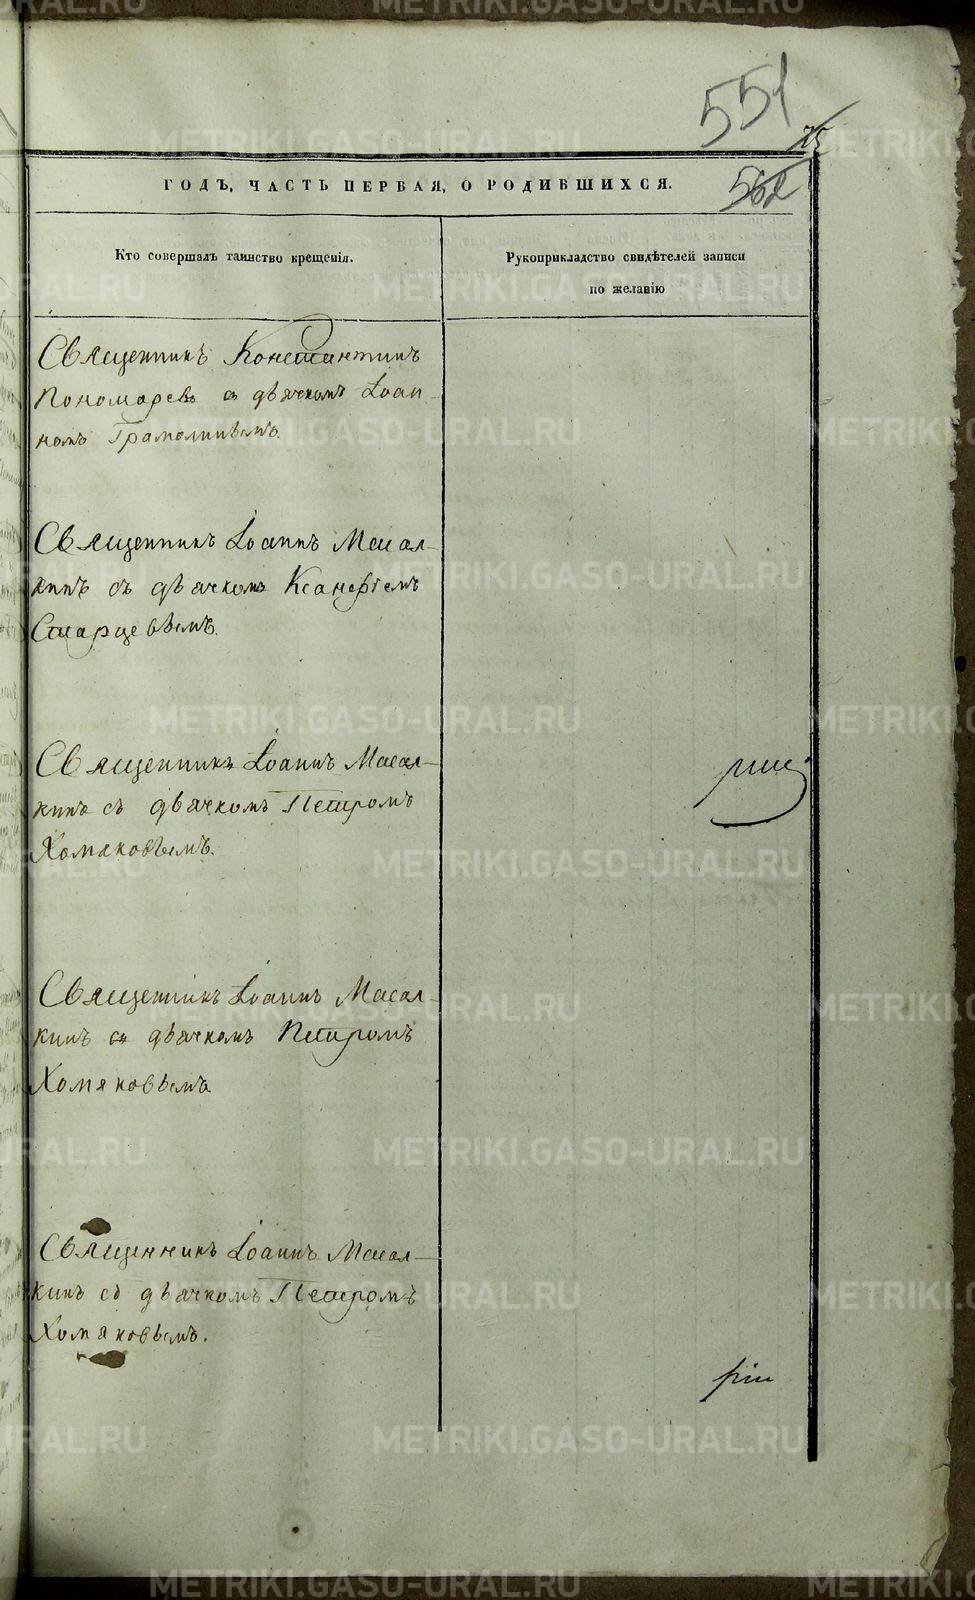 551
25
562
ГОДЪ, ЧАСТЬ ПЕРВАЯ, О РОДИВШИХСЯ.
Кто совершалъ таинство крещенія.
Рукоприкладство свидѣтелей записи
по желанію
Священникъ Константинъ
Пономаревъ съ дьячкомъ Іоан
номъ
Священникъ Іоаннъ Масал-
кинъ съ дьячкомъ Ксанфіемъ
Старцевымъ.
Священникъ Іоаннъ Масал-
кинъ съ дьячкомъ Петромъ
Хомяковымъ.
Священникъ Іоаннъ Масал-
кинъ съ дьячкомъ Петромъ
Хомяковымъ
Священникъ Іоаннъ Масал-
кинъ съ дьячкомъ Петромъ
Хомяковымъ.
METRIKI.GASO-URAL.RU